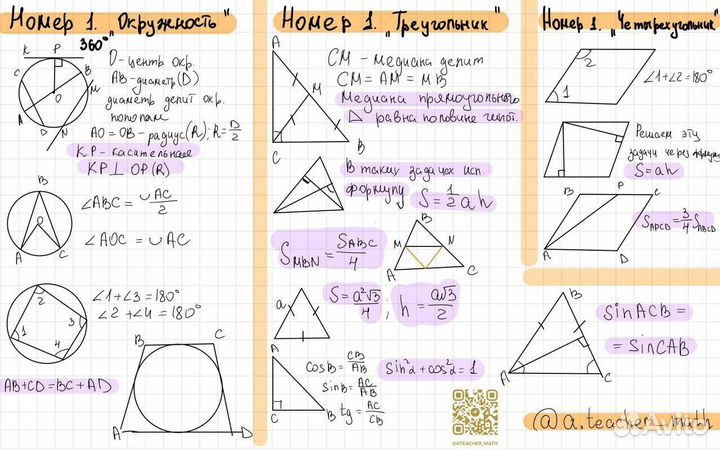 Номер 1. "Окружность"
360°
K P
C B M O A D N
O - центр окр.
AB - диаметр (D)
диаметр делит окр.
пополам
AO = OB - радиус (R); R = D/2
KP - касательная
KP ⊥ OP (R)
B
O
A C
∠ABC = ∪AC/2
∠AOC = ∪AC
2
1 3
4
∠1 + ∠3 = 180°
∠2 + ∠4 = 180°
AB + CD = BC + AD
B C
A D
Номер 1. "Треугольник"
A
M
C B
CM - медиана делит
CM = AM = MB
Медиана прямоугольного
△ равна половине гипот.
В таких задачах исп.
формулу S = 1/2 a h
S MBN = S ABC/4
B
M N
A C
a
S = a²√3/4 ; h = a√3/2
A
C B
cosB = CB/AB
sinB = AC/AB
tg = AC/CB
sin²α + cos²α = 1
@ATEACHER_MATH
Номер 1. "Четырехугольник"
2
1
∠1 + ∠2 = 180°
Решаем эту
задачу через формулу
S = ah
B P C
A D
S APCD = 3/4 S ABCD
B
A C
sin ACB =
= sin CAB
@a.teacher_math
Avito